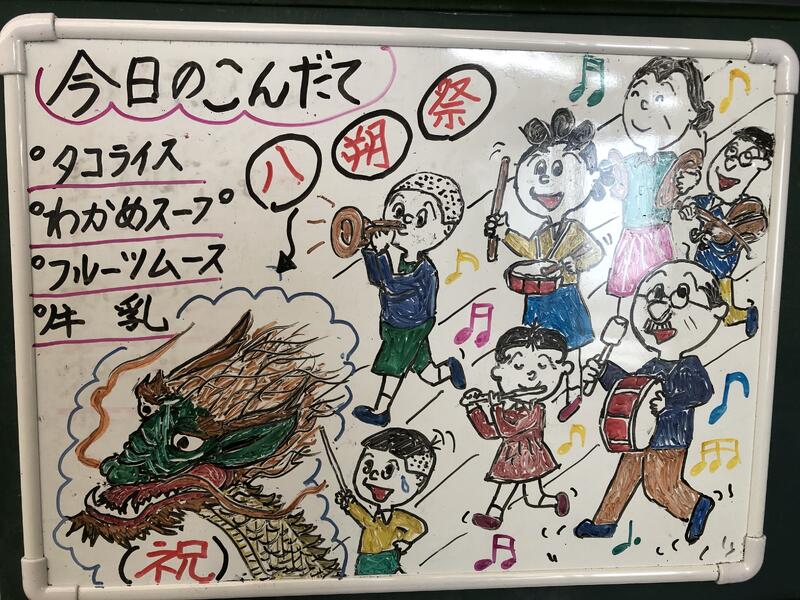 今日のこんだて
タコライス
わかめスープ
フルーツムース
牛乳
八朔祭
(祝)